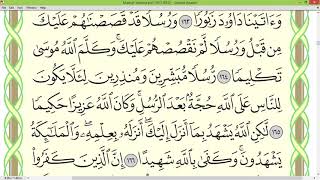 وَءَاتَيْنَا دَاوُۥدَ زَبُورًا ١٦٣ وَرُسُلًا قَدْ قَصَصْنَٰهُمْ عَلَيْكَ
مِن قَبْلُ وَرُسُلًا لَّمْ نَقْصُصْهُمْ عَلَيْكَ ۚ وَكَلَّمَ ٱللَّهُ مُوسَىٰ
تَكْلِيمًا ١٦٤ رُّسُلًا مُّبَشِّرِينَ وَمُنذِرِينَ لِئَلَّا يَكُونَ
لِلنَّاسِ عَلَى ٱللَّهِ حُجَّةٌۢ بَعْدَ ٱلرُّسُلِ ۚ وَكَانَ ٱللَّهُ عَزِيزًا حَكِيمًا ١٦٥
لَّٰكِنِ ٱللَّهُ يَشْهَدُ بِمَآ أَنزَلَ إِلَيْكَ ۖ أَنزَلَهُۥ بِعِلْمِهِۦ ۖ وَٱلْمَلَٰٓئِكَةُ
يَشْهَدُونَ ۚ وَكَفَىٰ بِٱللَّهِ شَهِيدًا ١٦٦ إِنَّ ٱلَّذِينَ كَفَرُوا۟